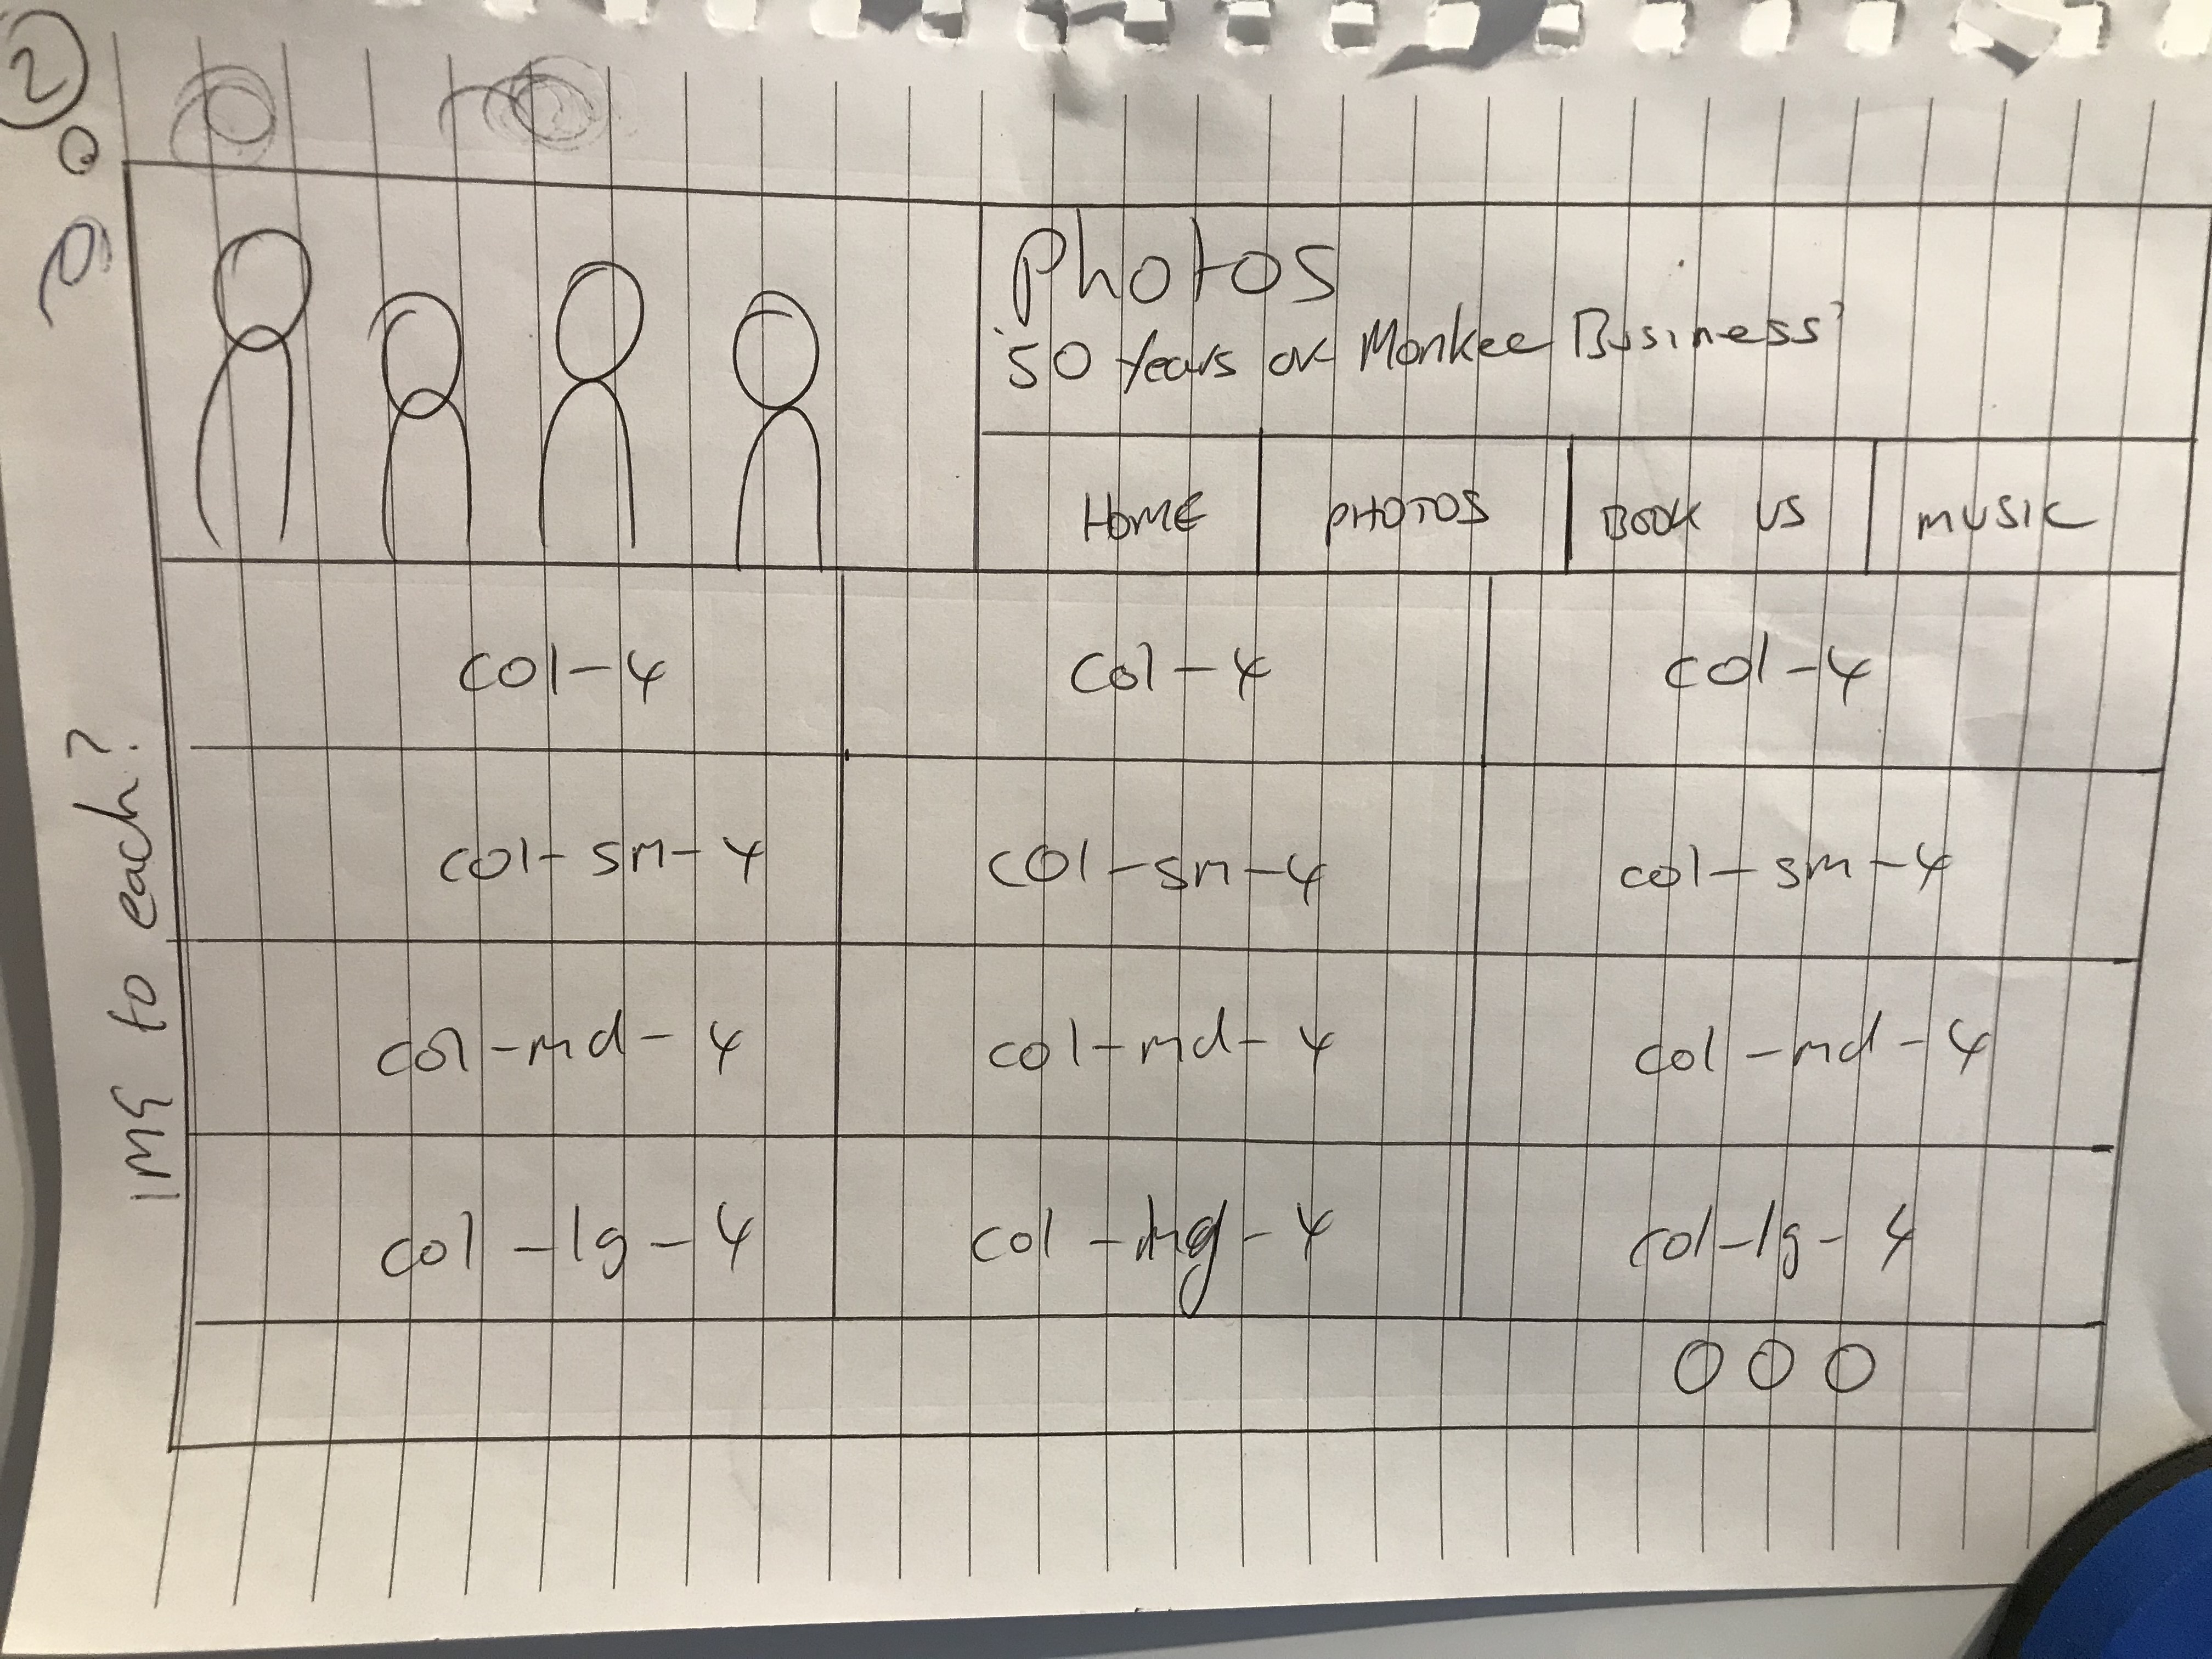 2
Photos
'50 Years of Monkee Business'
HOME PHOTOS BOOK US MUSIC
col-4 col-4 col-4
col-sm-4 col-sm-4 col-sm-4
col-md-4 col-md-4 col-md-4
col-lg-4 col- -4 col-lg-4
IMG to each?